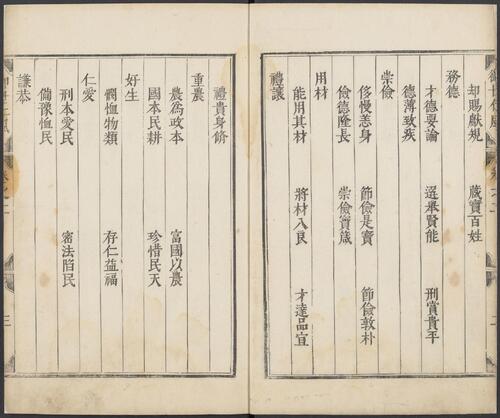 却賜獻規　藏寶百姓
務德
才德要論　選舉賢能　刑賞貴平
德薄致疾
崇儉
侈慢恙身　節儉是寶　節儉敦朴
儉德隆長　崇儉箴
用材
能用其材　將材入良　才達品宜
禮讓
禮貴身脩
重農
農爲政本　富國以農
國本民耕　珍惜民天
好生
憫恤物類　存仁益福
仁愛
刑本愛民　密法陷民
備豫恤民
謙恭